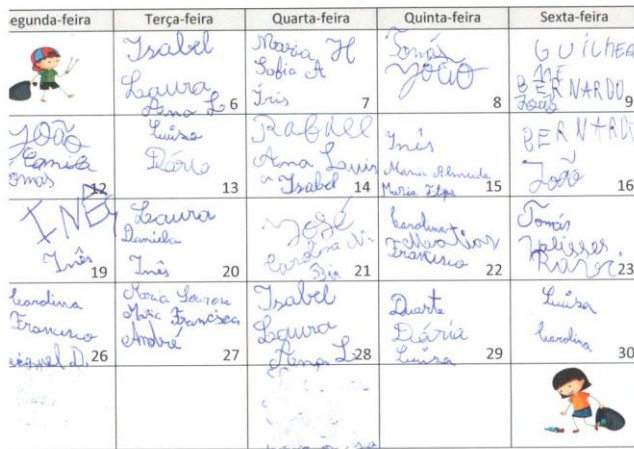 egunda-feira Terça-feira Quarta-feira Quinta-feira Sexta-feira
Isabel
Laura
Lena L 6
Maria H
Sofia A
Íris
7
Tomás
João
8
GUILHER
ME
BERNARDO
João 9
João
Camila
omas
12
Luísa
Dário
13
Rafael
Ana Luís
a Isabel 14
Inês
Maria Almeida
Maria Filpa 15
BERNARDO
João 16
INÊ
Inês
19
Laura
Daniela
Inês 20
José
Carolina N.
21
Carolina
Matias
Francisco 22
Tomás
Ulisses
23
Carolina
Francisco
iguel D. 26
Maria Lourenç
Maria Francisca
André 27
Isabel
Laura
Lena L. 28
Duarte
Dária
Luísa 29
Luísa
Carolina
30